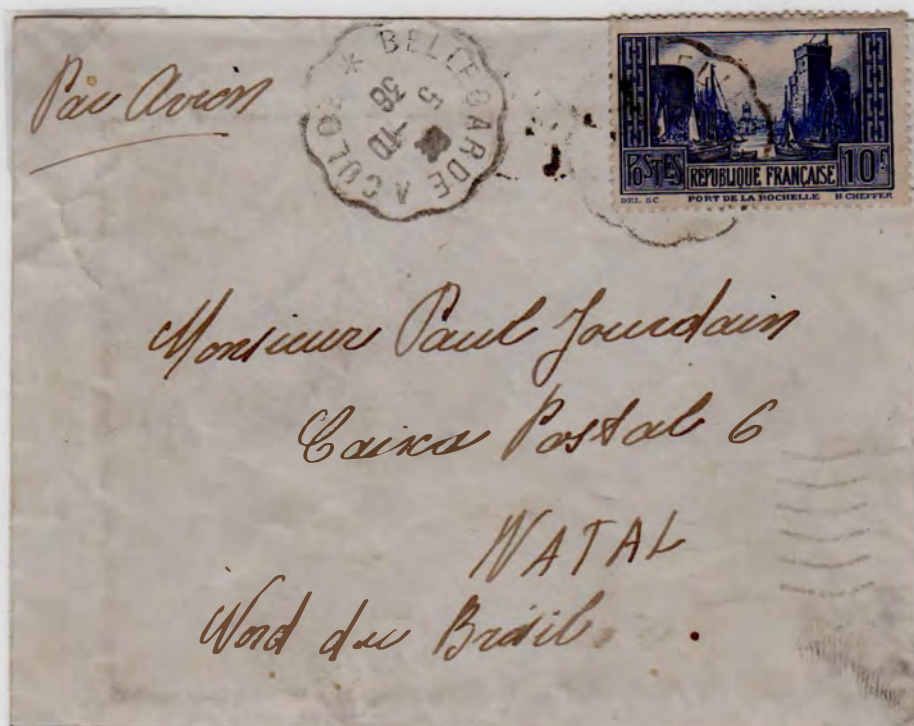 Par Avion
BELLEGARDE A CULOZ *
5 -10
38
POSTES RÉPUBLIQUE FRANÇAISE 10F
DEL. SC. PORT DE LA ROCHELLE H CHEFFER
Monsieur Paul Jourdain
Caixa Postal 6
NATAL
Nord du Brésil